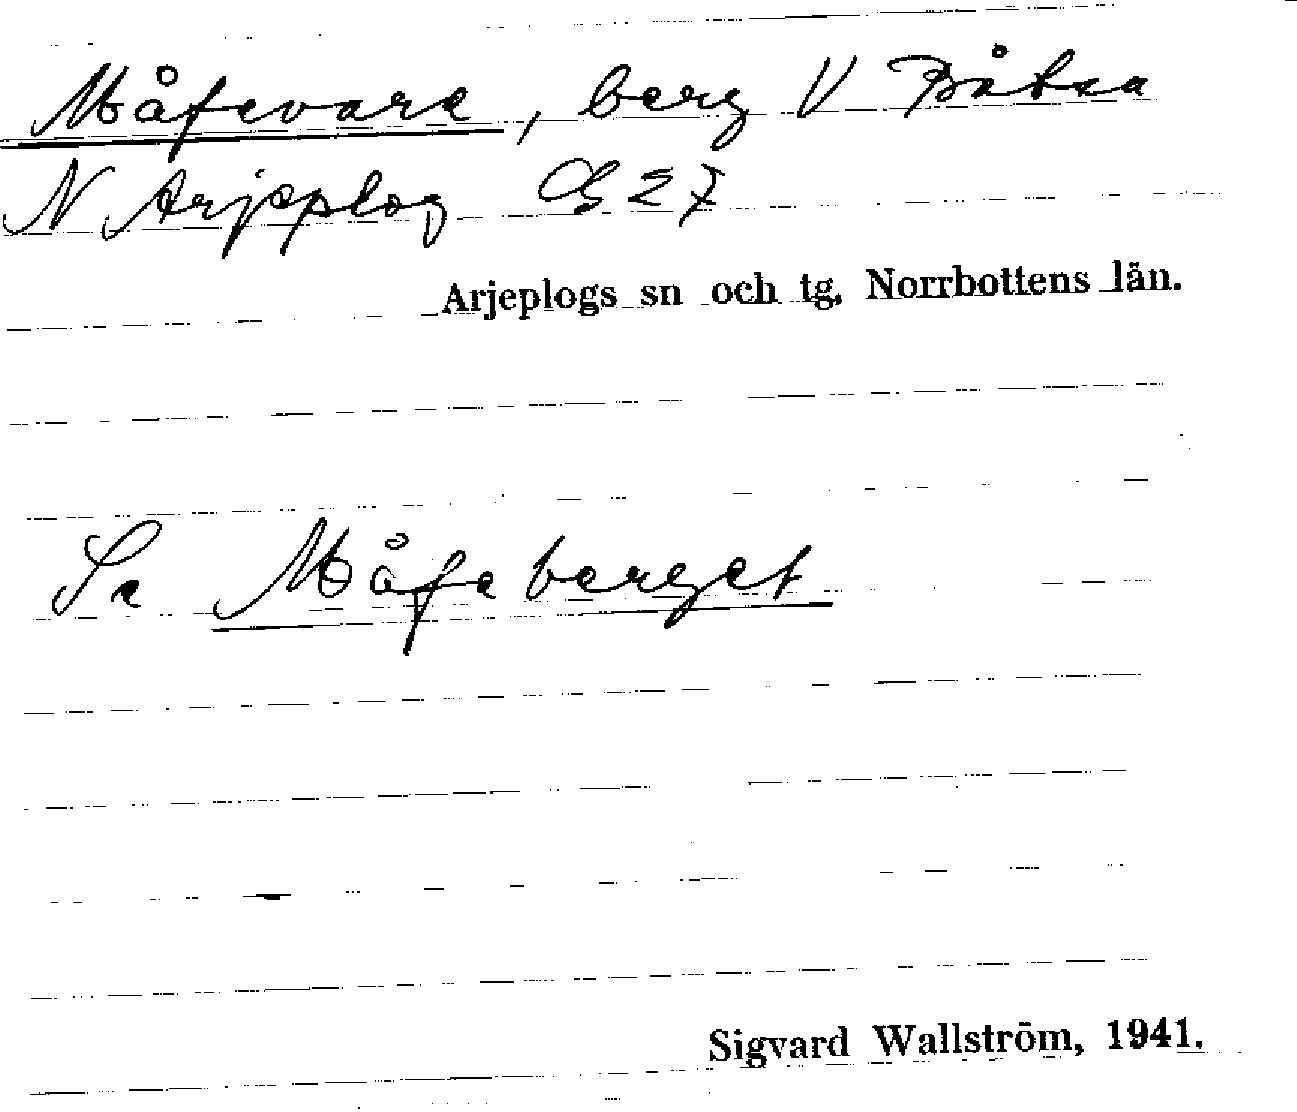 Måfevare, berg V Båtsa
N Arjepplog CG 27
Arjeplogs sn och tg, Norrbottens län.
Se Måfeberget
Sigvard Wallström, 1941.